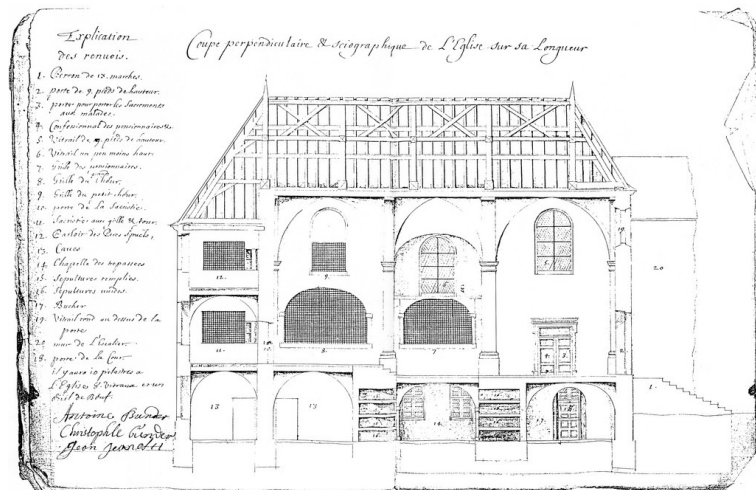 Explication
des renvois.
Coupe perpendiculaire & sciographique de L'Eglise sur sa Longueur
1. Perron de 13. marches.
2. porte de 9. pieds de hauteur.
3. porte pour porter les Sacrements
aux malades.
4. Confessionnal des pensionnaires
5. Vitrail de 9. pieds de hauteur.
6. Vitrail un peu moins haut.
7. Grille des pensionnaires.
8. Grille du Chœur.
9. Grille du petit chœur.
10. porte de la Sacristie.
11. Sacristie avec grille & tour.
12. Parloir des
13. Caves
14. Chapelle des trepassés
15. Sepultures remplies.
16. Sepultures vuides.
17. Bucher
19. Vitrail rond au dessus de la
porte
20 mur de L'Escalier.
18. porte de la Cour.
il y aura 10 pilastres a
L'Eglise 8. Vitraux et un
Œil de Bœuf.
Antoine
Christophle
Jean
12.
9.
6.
5.
19
20
11.
8.
7.
4.
3.
2.
1.
13
17
15.
14.
17.
18.